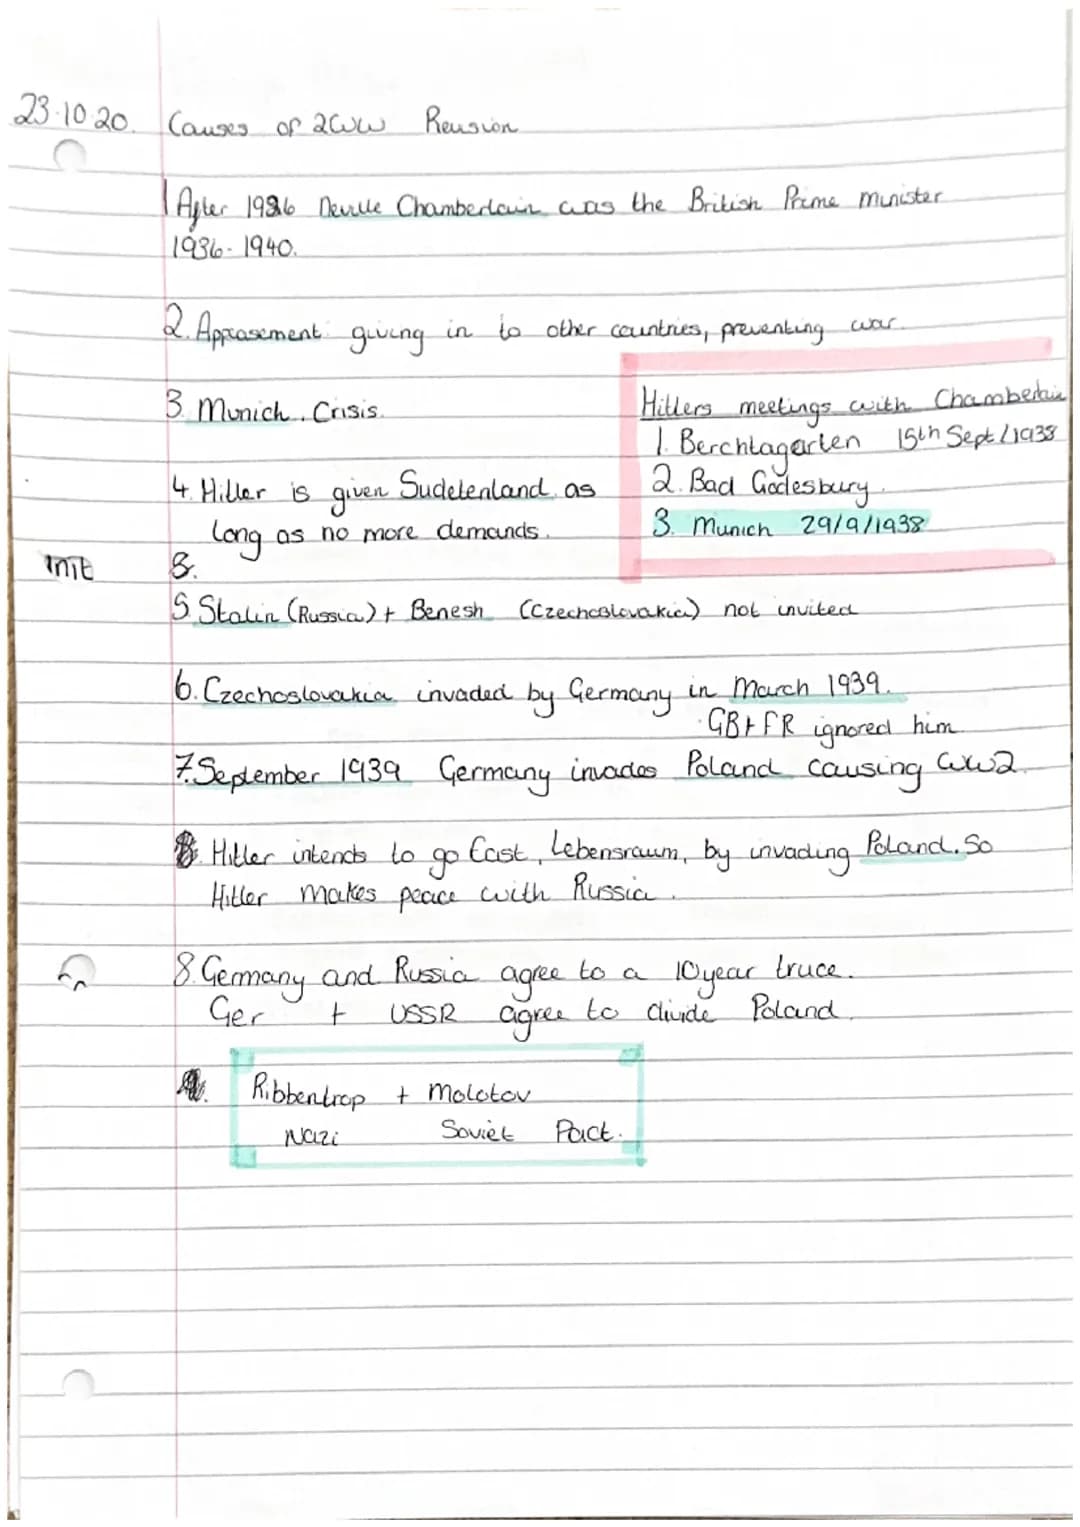 23.10.20. Causes of 2WW Revision
1 After 1936 Neville Chamberlain was the British Prime Minister
1936-1940.
2. Appeasement: giving in to other countries, preventing war.
3. Munich Crisis.
Hitlers meetings with Chamberlain
1. Berchtagarten 15th Sept/1938
2. Bad Godesburg.
3. Munich 29/9/1938
4. Hitler is given Sudetenland as
long as no more demands.
5. Stalin (Russia) + Benesh (Czechoslovakia) not invited
6. Czechoslovakia invaded by Germany in March 1939.
GB+FR ignored him
7. September 1939 Germany invades Poland causing WW2.
Hitler intends to go East, Lebensraum, by invading Poland. So
Hitler makes peace with Russia.
8. Germany and Russia agree to a 10 year truce.
Ger + USSR agree to divide Poland.
Ribbentrop + Molotov
Nazi Soviet Pact.